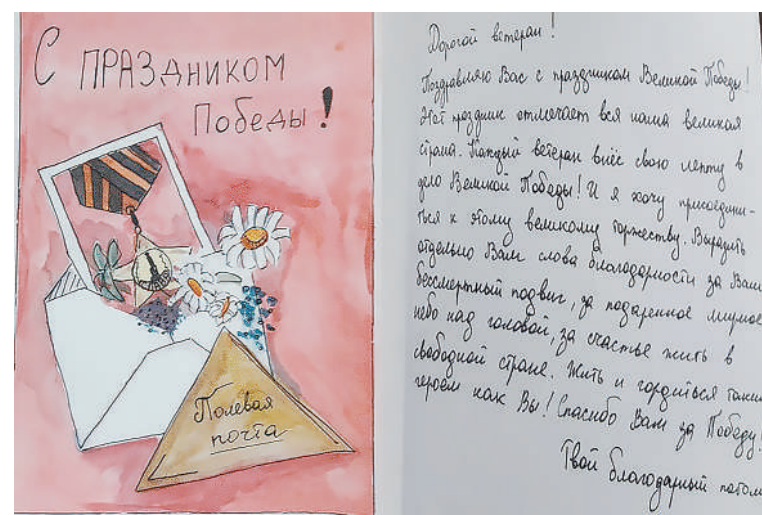 С ПРАЗДНИКОМ
Победы!
Полевая
почта
Дорогой ветеран!
Поздравляю Вас с праздником Великой Победы!
Этот праздник отмечает вся наша великая
страна. Каждый ветеран внёс свою лепту в
дело Великой Победы! И я хочу присоедини-
ться к этому великому торжеству. Выразить
отдельно Вам слова благодарности за Ваш
бессмертный подвиг, за подаренное мирное
небо над головой, за счастье жить в
свободной стране. Жить и гордиться таким
героем как Вы! Спасибо Вам за Победу!
Твой благодарный потом